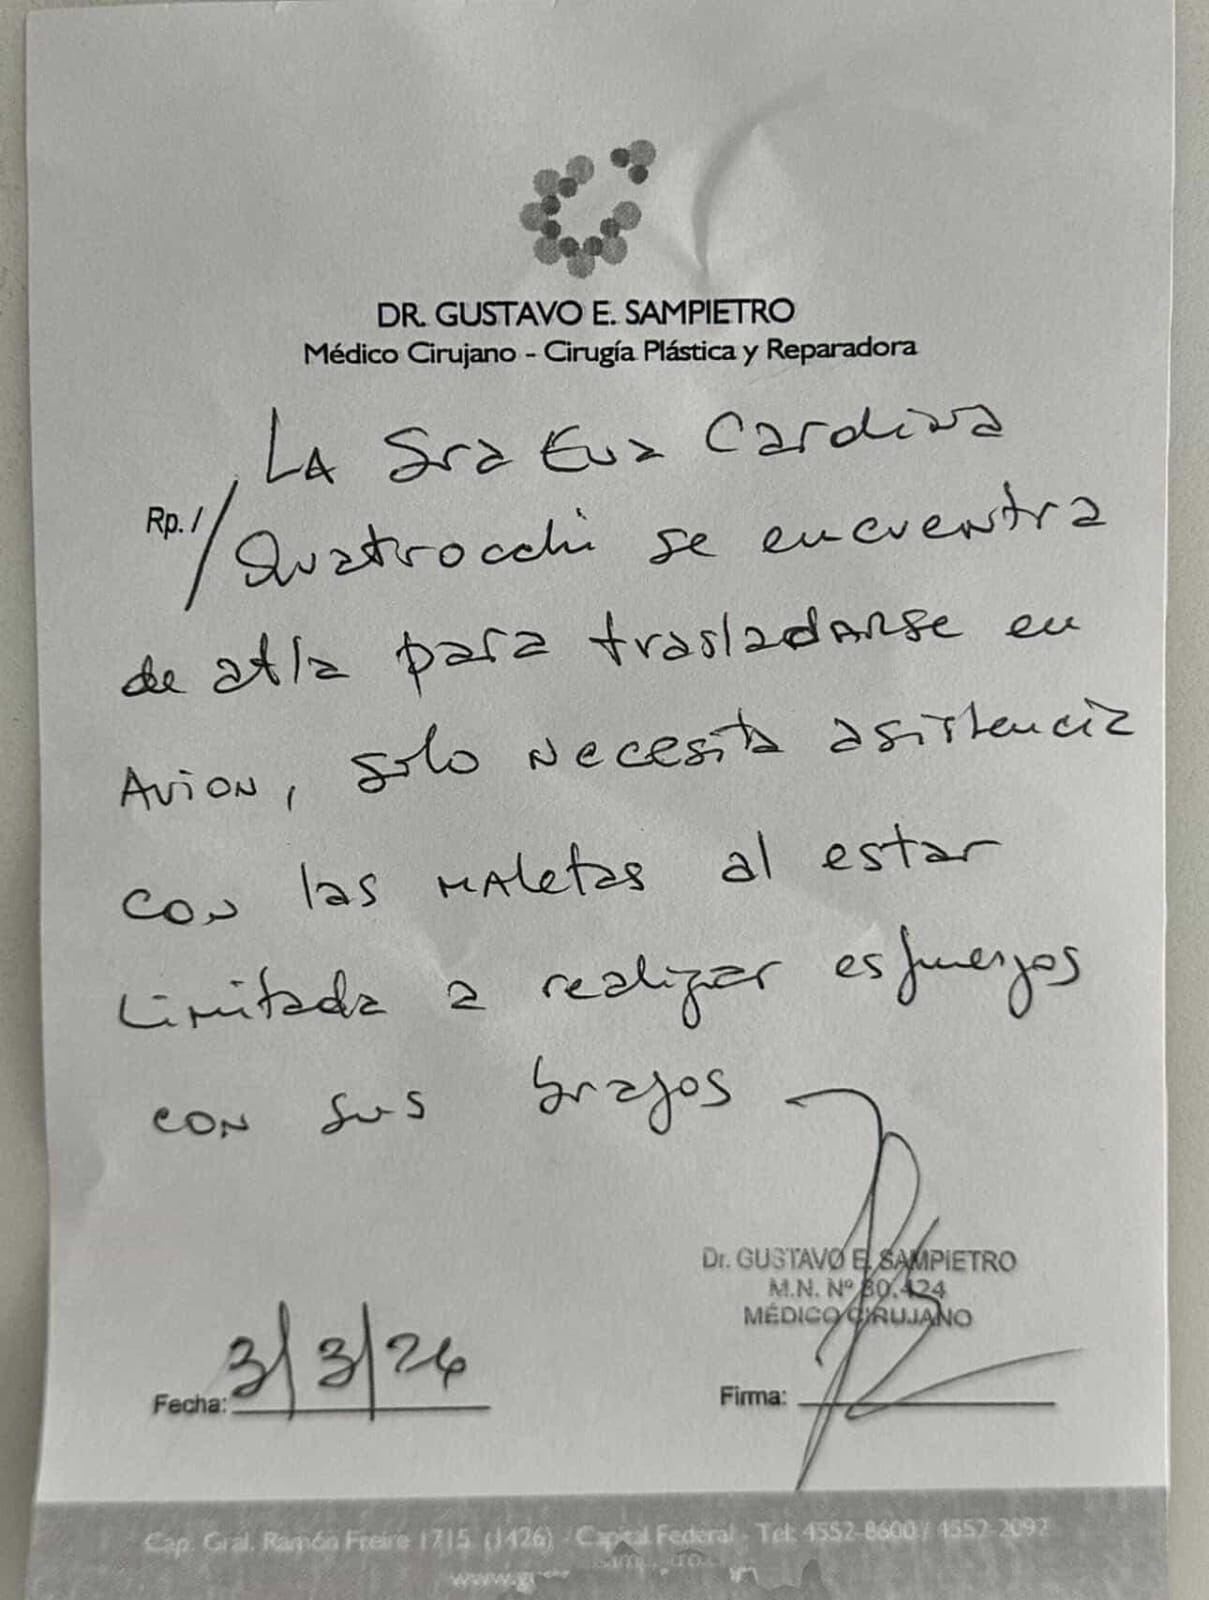 DR. GUSTAVO E. SAMPIETRO
Médico Cirujano - Cirugía Plástica y Reparadora
LA Sra Eva Cardina
Rp. /
Quatrocchi se encuentra
de alta para trasladarse en
AVION, solo necesita asistencia
con las maletas al estar
Limitada a realizar esfuerzos
con sus brazos
Dr. GUSTAVO E. SAMPIETRO
M.N. Nº 80.424
MÉDICO CIRUJANO
Fecha: 3/3/26
Firma:
Cap. Gral. Ramón Freire 1715 (1426) - Capital Federal - Tel: 4552-8600 / 4552-2092